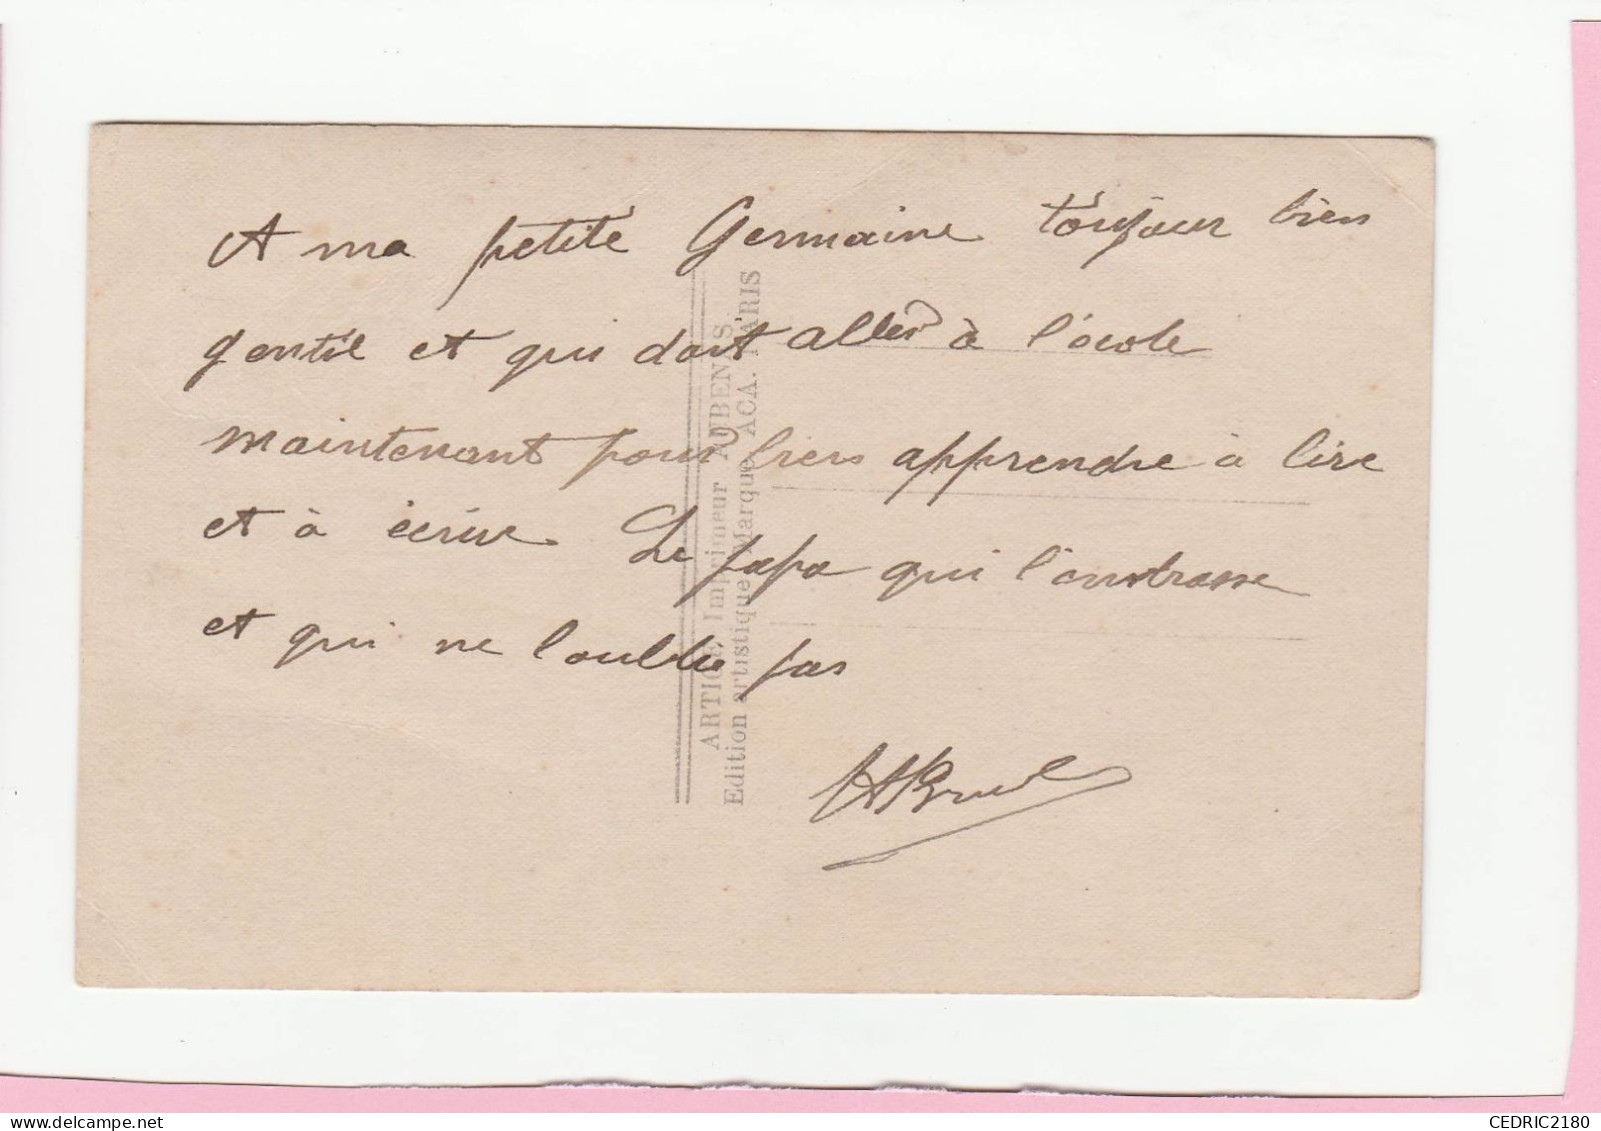 A ma petite Germaine toujour bien
gentil et qui doit aller à l'école
maintenant pour bien apprendre à lire
et à écrire. Le papa qui l'embrasse
et qui ne l'oublie pas
ARTIGE, Imprimeur AUBENAS.
Edition artistique Marque ACA. PARIS
CEDRIC2180